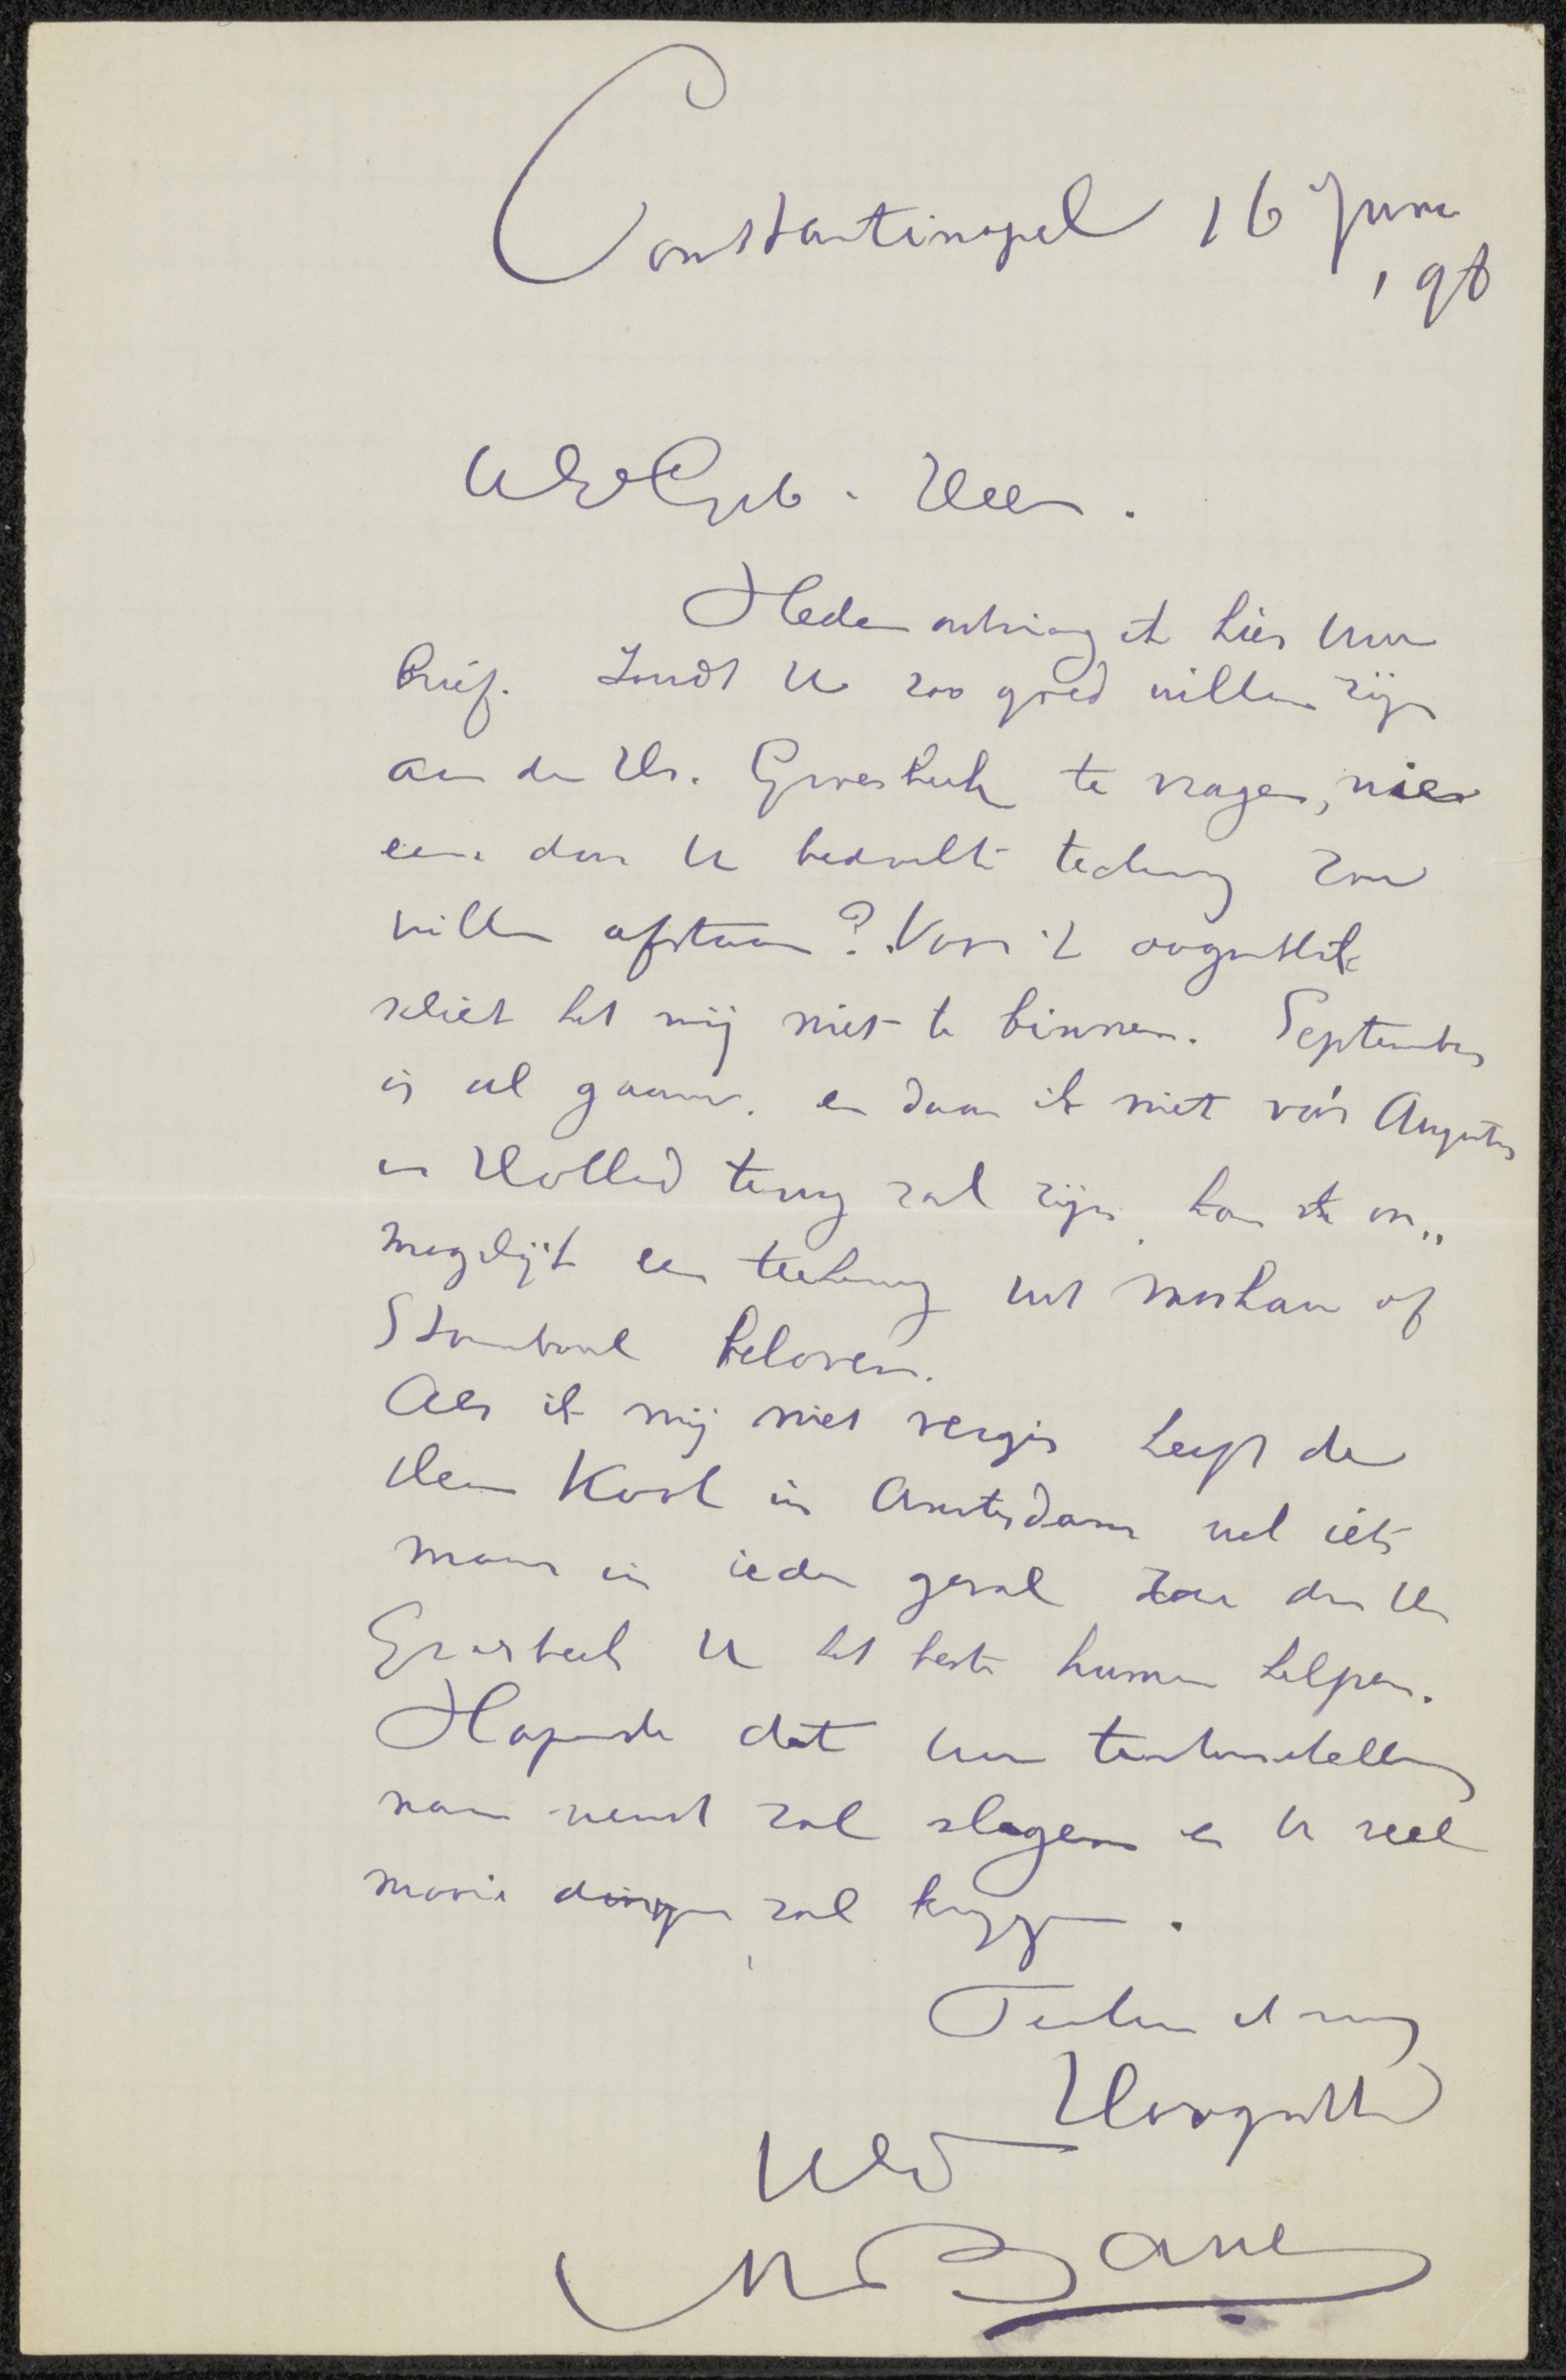 Constantinopel 16 Juni
'98
WelEdGeb. Heer.
Heden ontving ik hier Uw
brief. Zoudt U zoo goed willen zijn
aan den Hr. Groesbeek te vragen, wie
een door U bedoelde teekening zou
willen afstaan? Voor 't oogenblik
schiet het mij niet te binnen. September
is al gauw. en daar ik niet vóór Augustus
in Holland terug zal zijn kan ik on„
mogelijk een teekening uit Moskau of
Stamboul beloven.
Als ik mij niet vergis heeft de
Heer Kool in Amsterdam wel iets
maar in ieder geval zou den Hr
Groesbeek U het beste kunnen helpen.
Hopende dat Uw tentoonstelling
naar wensch zal slagen en U veel
mooie dingen zal krijgen.
Teeken ik mij
Hoogachtend
UEd
M Bauer